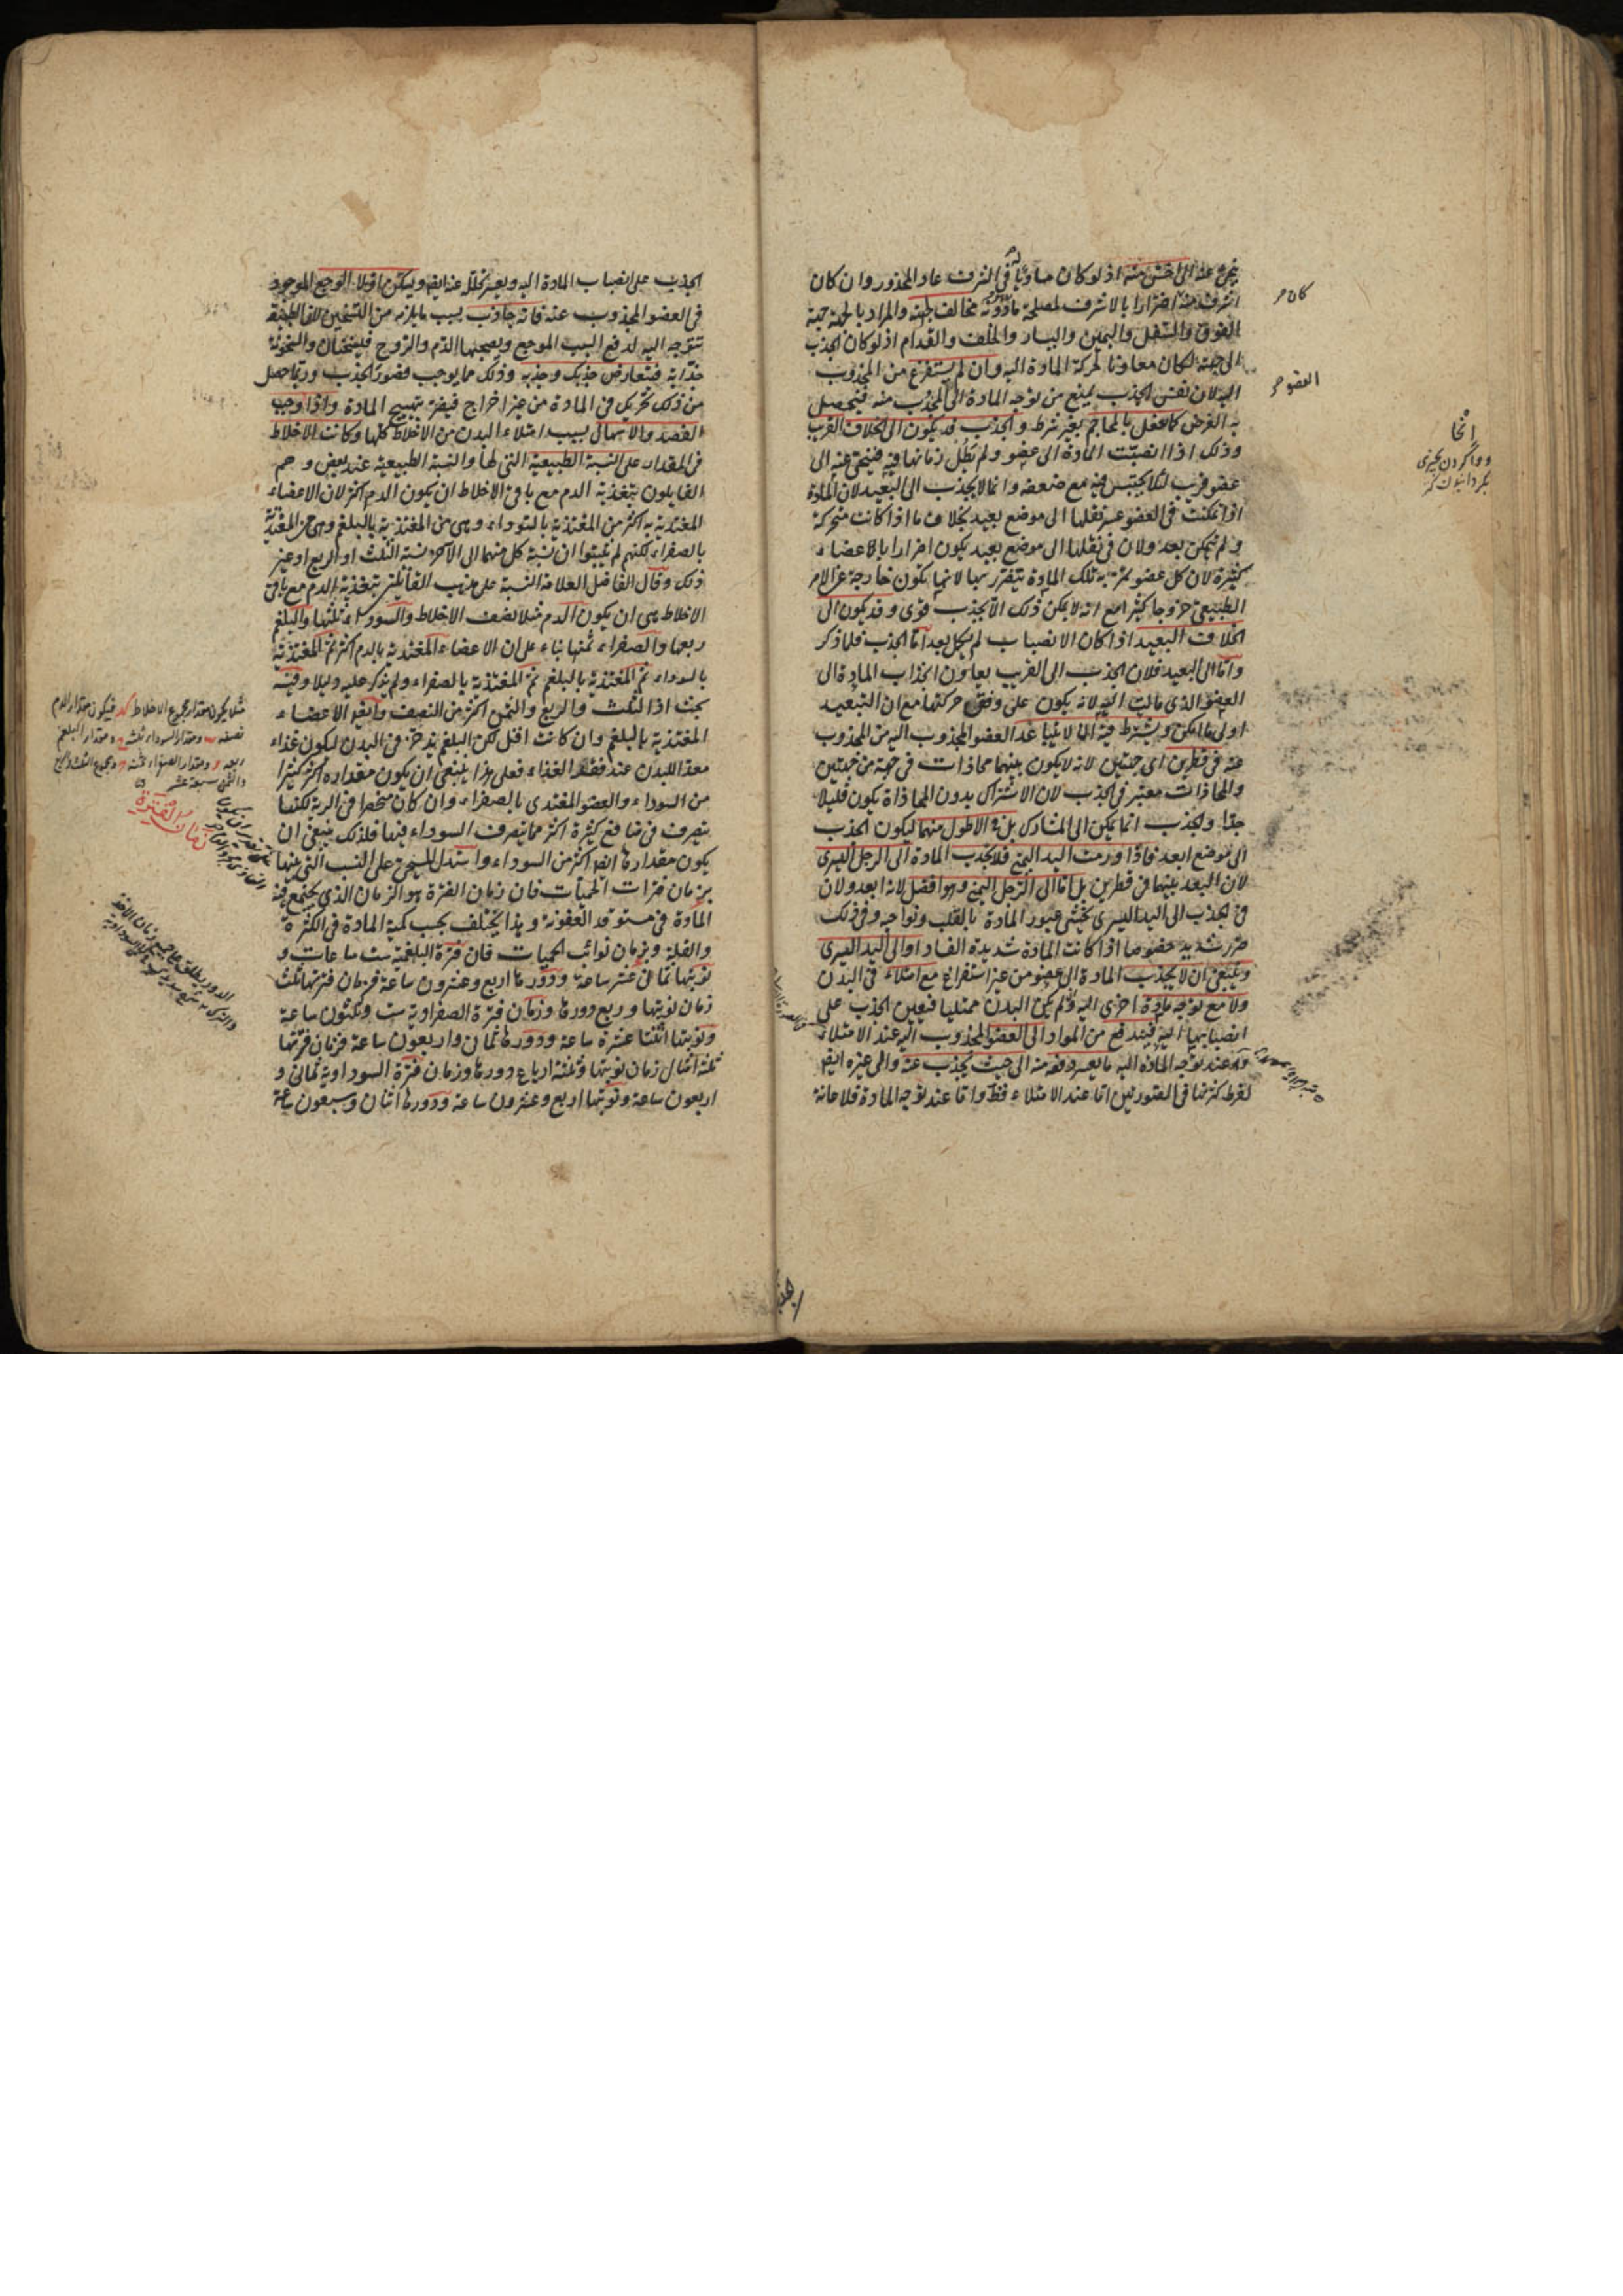 ينحى عنه الى اخس منه اذ لو كان مساويا له فى الشرف عاد المحذور وان كان
اشرف منه اضرارا بالاشرف لمصلحة مادونه مخالف جهته والمراد بالجهة جهة
الفوق والسفل واليمين واليسار والخلف والقدام اذ لو كان الجذب
الى جهته لكان معاونا لحركة المادة اليه وان لم يستفرغ من المجذوب
اليه لان نفس الجذب يمنع من توجه المادة الى المجذب منه فيحصل
به الغرض كما يفعل بالمحاجم بغير شرط والجذب قد يكون الى الخلاف القريب
وذلك اذا انصبت المادة الى عضو ولم تطل زمانها فيه فينحى عنه الى
عضو قريب لئلا يحتبس فيه مع ضعفه وانما لا يجذب الى البعيد لان المادة
اذا تمكنت فى العضو عسر نقلها الى موضع بعيد بخلاف ما اذا كانت متحركة
ولم تتمكن بعد ولان فى نقلها الى موضع بعيد يكون اضرارا بالاعضاء
كثيرة لان كل عضو يمر به تلك المادة يتضرر بها لانها تكون خارجة عن الامر
الطبيعى خروجا كثيرا مع انه لا يمكن ذلك الا بجذب قوى وقد يكون الى
الخلاف البعيد اذا كان الانصباب لم يكمل بعد اما الجذب فلما ذكر
واما الى البعيد فلان الجذب الى القريب يعاون انجذاب المادة الى
العضو الذى مالت اليه لانه يكون على وفق حركتها مع ان التبعيد
اولى ما امكن ويشترط فيه ان لا يتباعد العضو المجذوب اليه من المجذوب
عنه فى قطرين اى جهتين لانه لا يكون بينهما محاذات فى جهة من جهتين
والمحاذات معتبر فى الجذب لان الاشتراك بدون المحاذاة يكون قليلا
جدا والجذب انما يمكن الى المشارك بل فى الاطول منهما ليكون الجذب
الى موضع ابعد فاذا ورمت اليد اليمنى فلا يجذب المادة الى الرجل اليسرى
لان البعد بينهما فى قطرين بل اما الى الرجل اليمنى وهو افضل لانه ابعد ولان
فى الجذب الى اليد اليسرى يخشى عبور المادة بالقلب ونواحيه وفى ذلك
ضرر شديد خصوصا اذا كانت المادة شديدة الفساد او الى اليد اليسرى
وينبغى ان لا يجذب المادة الى عضو من غير استفراغ مع امتلاء فى البدن
ولا مع توجه مادة اخرى اليه ولم يكن البدن ممتليا فيعين الجذب على
انصبابها اليه فيندفع من المواد الى العضو المجذوب اليه عند الامتلاء
وعند توجه المادة اليه ما يعسر دفعه منه الى حيث يجذب عنه والى غيره ايضا
لفرط كثرتها فى الصورتين اما عند الامتلاء فظ واما عند توجه المادة فلاعانة
كان صر
العضو صر
انحا
الجذب على انصباب المادة اليه ويعسر تحلله عنه ايضا ويسكن اولا الوجع الموجود
فى العضو المجذوب عنه فانه جاذب بسبب ما يلزمه من التسخين لان الطبيعة
تتوجه اليه لدفع السبب الموجع ويصحبها الدم والروح فيسخنان والسخونة
جذابة فيتعارض جذبك وجذبه وذلك مما يوجب قصور الجذب وربما حصل
من ذلك تحريك فى المادة من غير اخراج فيضر بتهييج المادة واذا وجب
الفصد والاسهال بسبب امتلاء البدن من الاخلاط كلها وكانت الاخلاط
فى المقدار على النسبة الطبيعية التى لها والنسبة الطبيعية عند بعض وهم
القايلون بتغذية الدم مع باقى الاخلاط ان يكون الدم اكثر لان الاعضاء
المغتذية به اكثر من المغتذية بالسوداء وهى من المغتذية بالبلغم وهى من المغتذية
بالصفراء لكنهم لم يثبتوا ان نسبة كل منهما الى الآخر نسبة الثلث او الربع او غير
ذلك وقال الفاضل العلامة النسبة على مذهب القائلين بتغذية الدم مع باقى
الاخلاط هى ان يكون الدم مثلا نصف الاخلاط والسوداء ثلثها والبلغم
ربعها والصفراء ثمنها بناء على ان الاعضاء المغتذية بالدم اكثر ثم المغتذية
بالسوداء ثم المغتذية بالبلغم ثم المغتذية بالصفراء ولم يذكر عليه دليلا وفيه
بحث اذ الثلث والربع والثمن اكثر من النصف وايضا الاعضاء
المغتذية بالبلغم وان كانت اقل لكن البلغم يدخر فى البدن ليكون غذاء
معدا للبدن عند فقد الغذاء فعلى هذا ينبغى ان يكون مقداره اكثر كثيرا
من السوداء والعضو المغتدى بالصفراء وان كان منحصرا فى الرية لكنها
يتصرف فى منافع كثيرة اكثر مما يتصرف السوداء فيها فلذلك ينبغى ان
يكون مقدارها ايضا اكثر من السوداء واستدل المسيحى على النسب التى بينها
بزمان فترات الحميات فان زمان الفترة هو الزمان الذى يجتمع فيه
المادة فى مستوقد العفونة وهذا يختلف بحسب كمية المادة فى الكثرة
والقلة وبزمان نوائب الحميات فان فترة البلغمية ست ساعات و
نوبتها ثمانى عشر ساعة ودورها اربع وعشرون ساعة فزمان فترتها ثلث
زمان نوبتها وربع دورها وزمان فترة الصفراوية ست وثلثون ساعة
ونوبتها اثنتا عشرة ساعة ودورها ثمان واربعون ساعة فزمان فترتها
ثلثة امثال زمان نوبتها وثلثة ارباع دورها وزمان فترة السوداوية ثمانى و
اربعون ساعة ونوبتها اربع وعشرون ساعة ودورها اثنان وسبعون ساعة
مثلا يكون مقدار مجموع الاخلاط كد فيكون مقدار الدم
نصفه ومقدار السوداء ثلثه ومقدار البلغم
ربعه و ومقدار الصفراء ثمنه ومجموع الثلث والربع
والثمن سبعة عشر
زمان الفترة